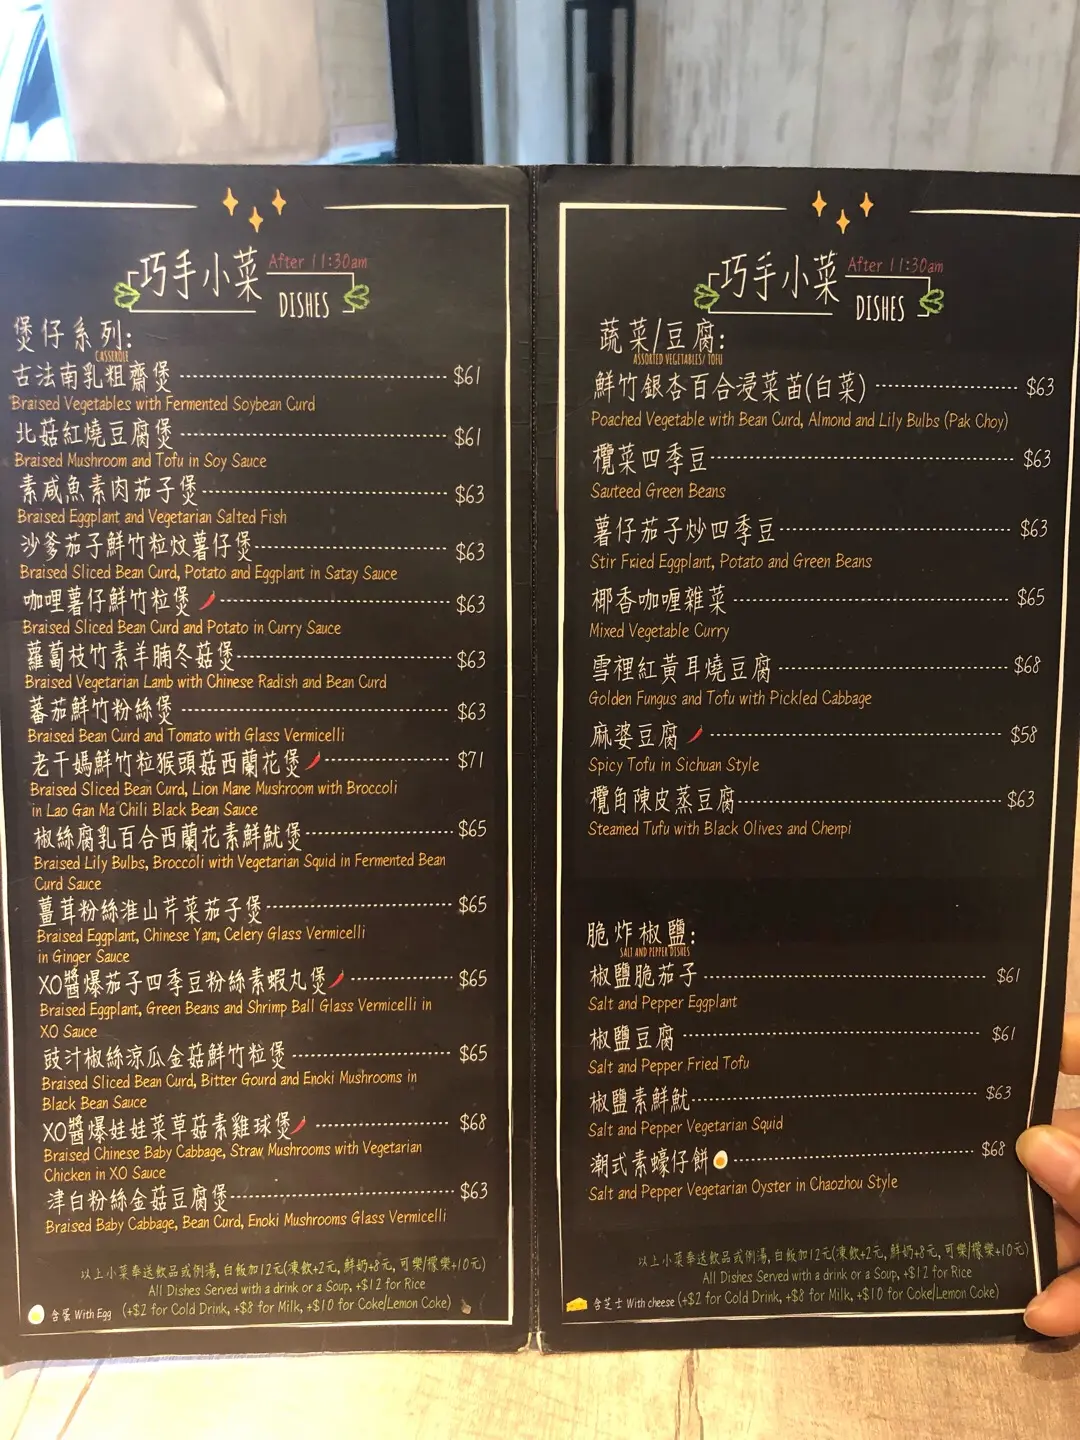 巧手小菜 After 11:30am
DISHES
煲仔系列:
CASSEROLE
古法南乳粗齋煲 $61
Braised Vegetables with Fermented Soybean Curd
北菇紅燒豆腐煲 $61
Braised Mushroom and Tofu in Soy Sauce
素咸魚素肉茄子煲 $63
Braised Eggplant and Vegetarian Salted Fish
沙爹茄子鮮竹粒炆薯仔煲 $63
Braised Sliced Bean Curd, Potato and Eggplant in Satay Sauce
咖哩薯仔鮮竹粒煲 $63
Braised Sliced Bean Curd and Potato in Curry Sauce
蘿蔔枝竹素羊腩冬菇煲 $63
Braised Vegetarian Lamb with Chinese Radish and Bean Curd
蕃茄鮮竹粉絲煲 $63
Braised Bean Curd and Tomato with Glass Vermicelli
老干媽鮮竹粒猴頭菇西蘭花煲 $71
Braised Sliced Bean Curd, Lion Mane Mushroom with Broccoli
in Lao Gan Ma Chili Black Bean Sauce
椒絲腐乳百合西蘭花素鮮魷煲 $65
Braised Lily Bulbs, Broccoli with Vegetarian Squid in Fermented Bean
Curd Sauce
薑茸粉絲淮山芹菜茄子煲 $65
Braised Eggplant, Chinese Yam, Celery Glass Vermicelli
in Ginger Sauce
XO醬爆茄子四季豆粉絲素蝦丸煲 $65
Braised Eggplant, Green Beans and Shrimp Ball Glass Vermicelli in
XO Sauce
豉汁椒絲涼瓜金菇鮮竹粒煲 $65
Braised Sliced Bean Curd, Bitter Gourd and Enoki Mushrooms in
Black Bean Sauce
XO醬爆娃娃菜草菇素雞球煲 $68
Braised Chinese Baby Cabbage, Straw Mushrooms with Vegetarian
Chicken in XO Sauce
津白粉絲金菇豆腐煲 $63
Braised Baby Cabbage, Bean Curd, Enoki Mushrooms Glass Vermicelli
以上小菜奉送飲品或例湯, 白飯加12元(凍飲+2元, 鮮奶+8元, 可樂/檬樂+10元)
All Dishes Served with a drink or a Soup, +$12 for Rice
含蛋 With Egg (+$2 for Cold Drink, +$8 for Milk, +$10 for Coke/Lemon Coke)
巧手小菜 After 11:30am
DISHES
蔬菜/豆腐:
ASSORTED VEGETABLES/ TOFU
鮮竹銀杏百合浸菜苗(白菜) $63
Poached Vegetable with Bean Curd, Almond and Lily Bulbs (Pak Choy)
欖菜四季豆 $63
Sauteed Green Beans
薯仔茄子炒四季豆 $63
Stir Fried Eggplant, Potato and Green Beans
椰香咖喱雜菜 $65
Mixed Vegetable Curry
雪裡紅黃耳燒豆腐 $68
Golden Fungus and Tofu with Pickled Cabbage
麻婆豆腐 $58
Spicy Tofu in Sichuan Style
欖角陳皮蒸豆腐 $63
Steamed Tufu with Black Olives and Chenpi
脆炸椒鹽:
SALT AND PEPPER DISHES
椒鹽脆茄子 $61
Salt and Pepper Eggplant
椒鹽豆腐 $61
Salt and Pepper Fried Tofu
椒鹽素鮮魷 $63
Salt and Pepper Vegetarian Squid
潮式素蠔仔餅 $68
Salt and Pepper Vegetarian Oyster in Chaozhou Style
以上小菜奉送飲品或例湯, 白飯加12元(凍飲+2元, 鮮奶+8元, 可樂/檬樂+10元)
All Dishes Served with a drink or a Soup, +$12 for Rice
含芝士 With cheese (+$2 for Cold Drink, +$8 for Milk, +$10 for Coke/Lemon Coke)